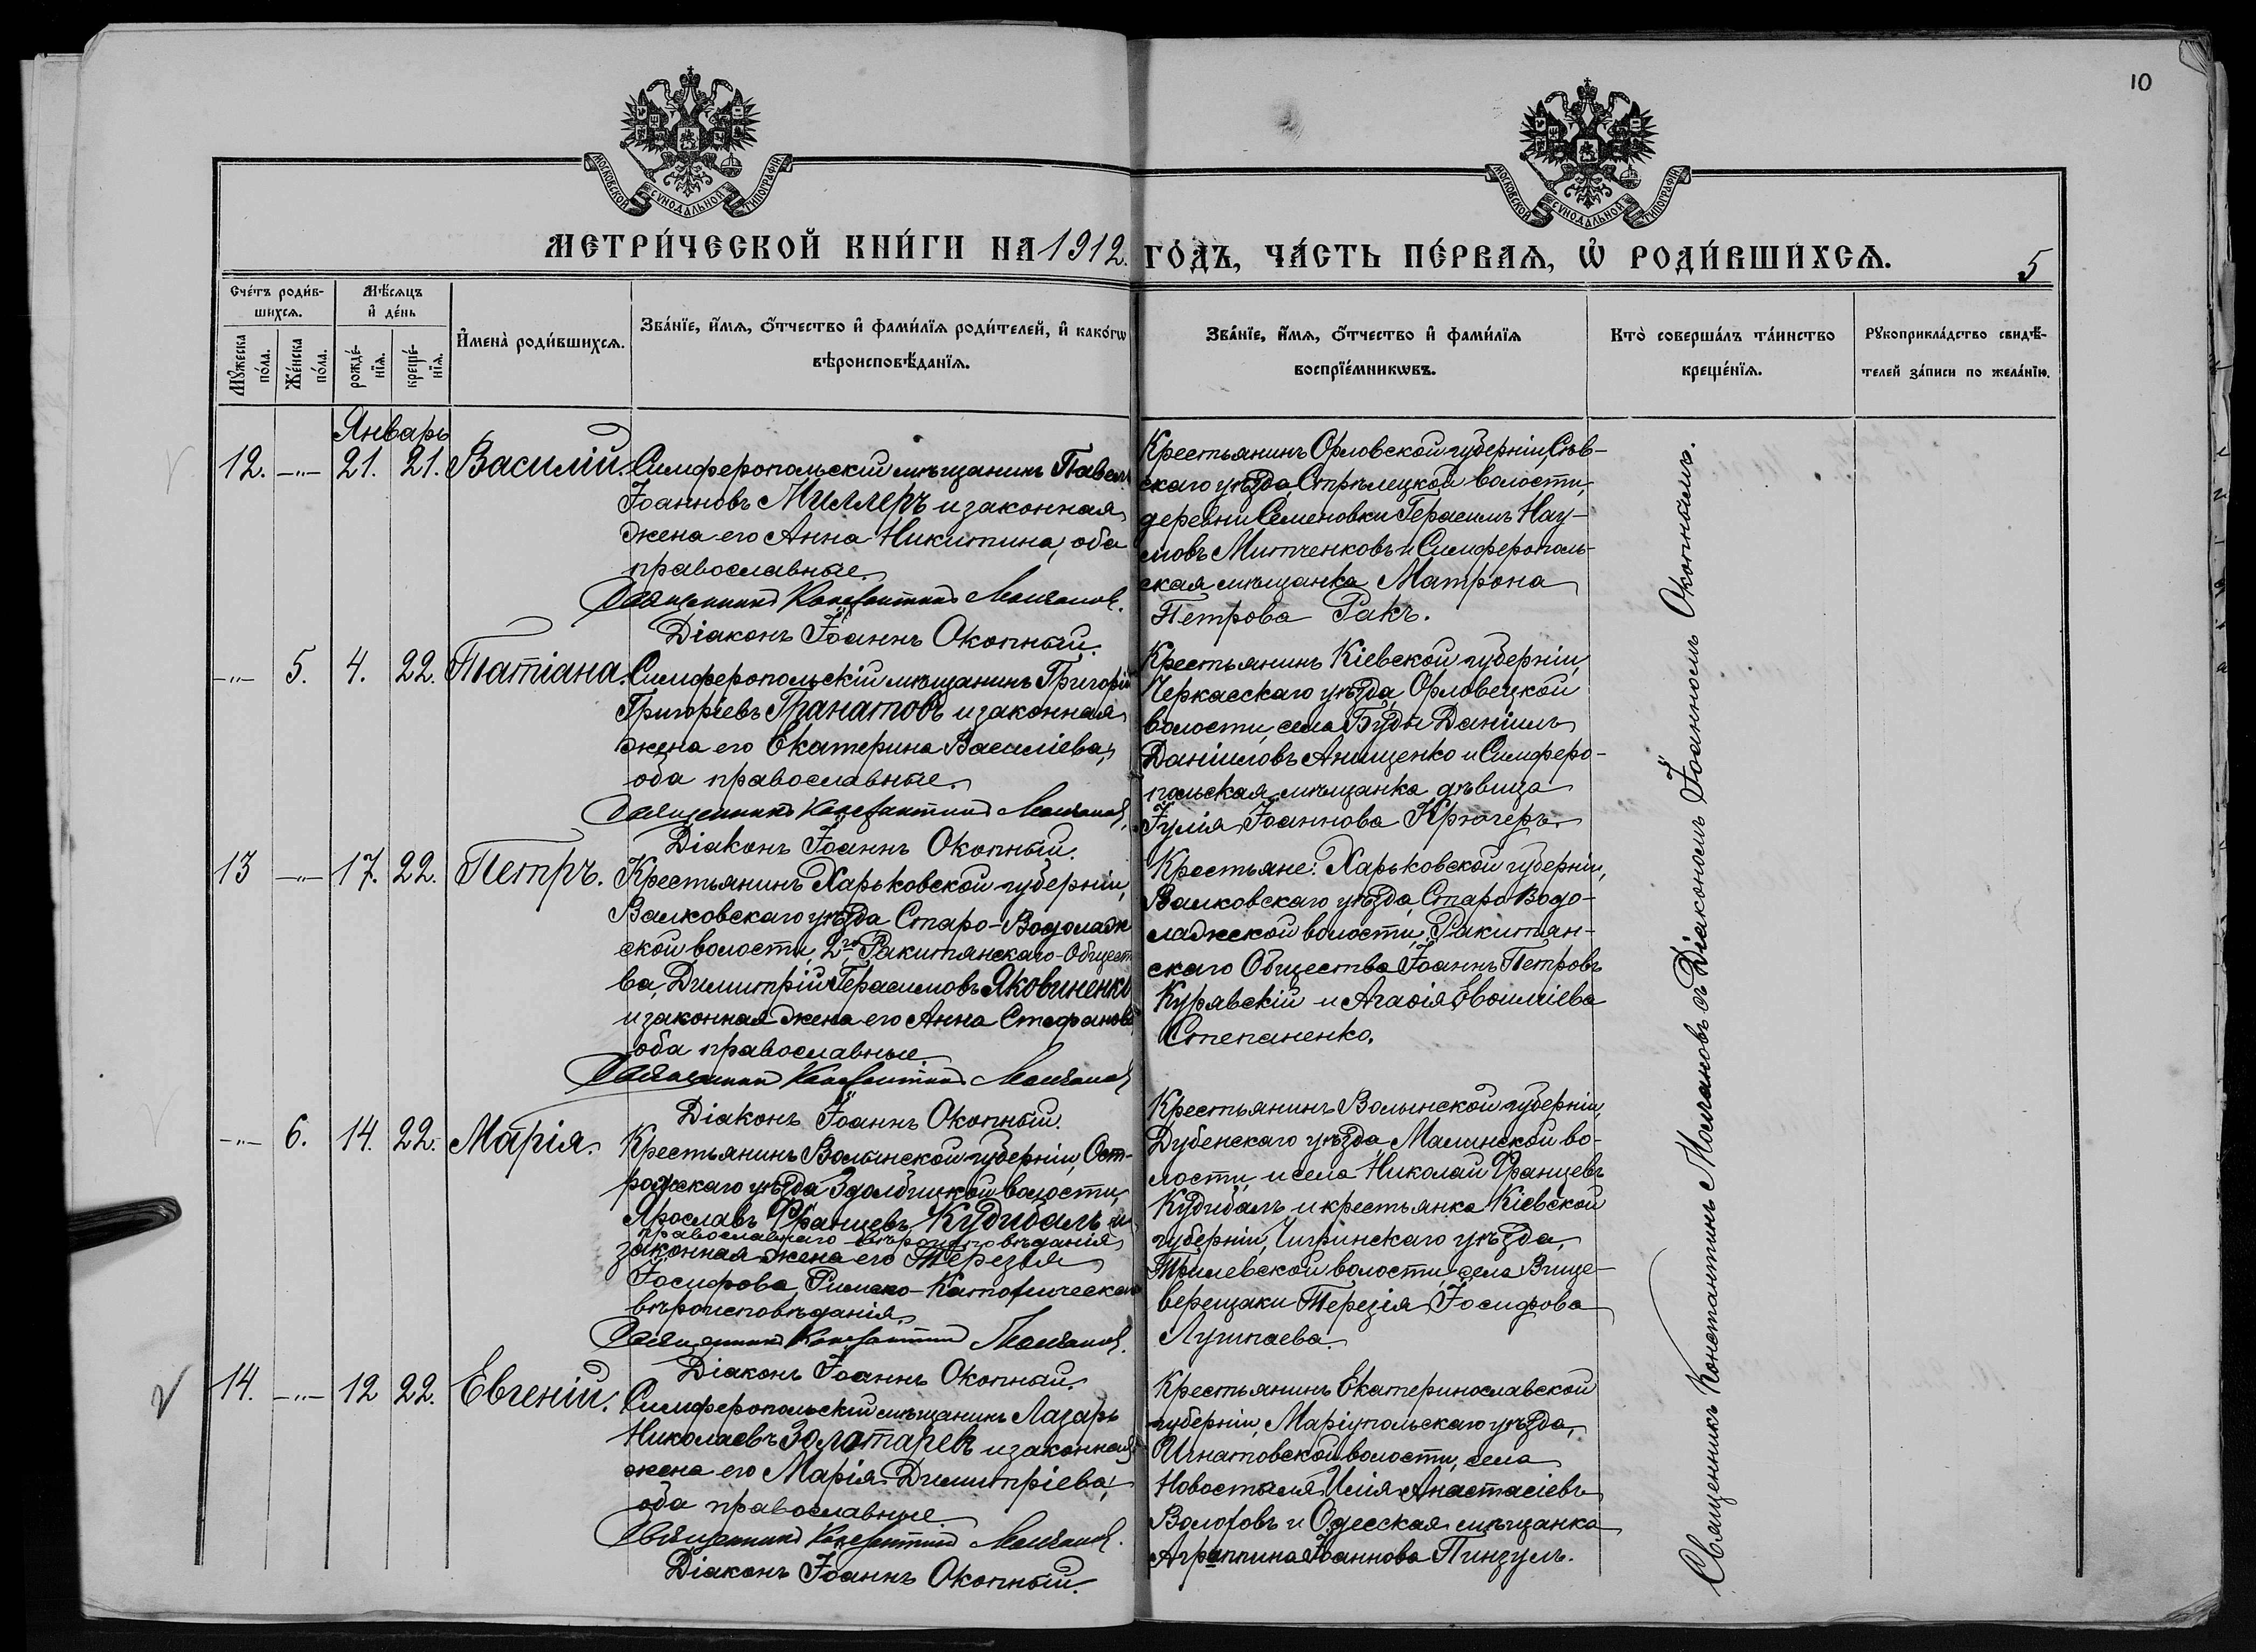 10
МОСКОВСКОЙ СѴНОДАЛЬНОЙ ТИПОГРАФІИ
МОСКОВСКОЙ СѴНОДАЛЬНОЙ ТИПОГРАФІИ
МЕТРИ́ЧЕСКОЙ КНИ́ГИ НА 1912. ГО́ДЪ, ЧА́СТЬ ПЕ́РВАѦ, Ѡ҆ РОДИ́ВШИХСѦ.
5
Сче́тъ роди́в-
шихсѧ.
Мꙋ́жеска по́ла.
Же́нска по́ла.
Мѣ́сѧцъ
и҆ де́нь
рожде́-
нїѧ.
креще́-
нїѧ.
И҆мена̀ роди́вшихсѧ.
Зва́нїе, и҆́мѧ, ѻ҆́тчество и҆ фами́лїѧ роди́телей, и҆ како́гѡ
вѣроисповѣ́данїѧ.
Зва́нїе, и҆́мѧ, ѻ҆́тчество и҆ фами́лїѧ
воспрїе́мникѡвъ.
Кто̀ соверша́лъ та́инство
креще́нїѧ.
Рꙋкоприкла́дство свидѣ́-
телей за́писи по жела́нїю.
Январь
12. -"- 21. 21. Василій.
Симферопольскій мѣщанинъ Павелъ
Іоанновъ Миллеръ и законная
жена его Анна Никитина, оба
православные.
Священникъ Константинъ Молчановъ.
Діаконъ Іоаннъ Окопный.
Крестьянинъ Орловской губерніи, Сѣв-
скаго уѣзда, Стрѣлецкой волости,
деревни Семеновки Герасимъ Нау-
мовъ Митченковъ и Симферополь-
ская мѣщанка Матрона
Петрова Ракъ.
-"- 5. 4. 22. Татіана.
Симферопольскій мѣщанинъ Григорій
Григоріевъ Гранатовъ и законная
жена его Екатерина Василіева,
оба православные.
Священникъ Константинъ Молчановъ.
Діаконъ Іоаннъ Окопный.
Крестьянинъ Кіевской губерніи,
Черкасскаго уѣзда, Орловецкой
волости, села Буды Даніилъ
Даніиловъ Анищенко и Симферо-
польская мѣщанка дѣвица
Іулія Іоаннова Крючеръ.
13 -"- 17. 22. Петръ.
Крестьянинъ Харьковской губерніи,
Валковскаго уѣзда Старо-Водолаж
ской волости, 2го Ракитянскаго-Общест
ва, Димитрій Герасимовъ Яковиненко
и законная жена его Анна Стефанова
оба православные.
Священникъ Константинъ Молчановъ
Діаконъ Іоаннъ Окопный.
Крестьяне: Харьковской губерніи,
Валковскаго уѣзда, Старо Водо-
лажской волости, Ракитян-
скаго Общества Іоаннъ Петровъ
Курявскій и Агаѳія Евѳиміева
Степаненко.
-"- 6. 14. 22. Марія.
Крестьянинъ Волынской губерніи, Ост-
рожскаго уѣзда Здолбицкой волости
Ярославъ Францевъ Кудибалъ и
православнаго вѣроисповѣданія
законная жена его Терезія
Іосифова Римско-Католическаго
вѣроисповѣданія.
Священникъ Константинъ Молчановъ.
Діаконъ Іоаннъ Окопный.
Крестьянинъ Волынской губерніи,
Дубенскаго уѣзда, Малинской во-
лости, и села Николай Францевъ
Кудибалъ и крестьянка Кіевской
губерніи, Чигринскаго уѣзда,
Трилевской волости, села Вище-
верещаки Терезія Іосифова
Лушпаева.
14. -"- 12 22. Евгеній.
Симферопольскій мѣщанинъ Лазарь
Николаевъ Золотаревъ и законная
жена его Марія Димитріева,
оба православные
Священникъ Константинъ Молчановъ.
Діаконъ Іоаннъ Окопный.
Крестьянинъ Екатеринославской
губерніи, Маріупольскаго уѣзда,
Игнатовской волости, села
Новоселья Илія Анастасіевъ
Волотовъ и Одесская мѣщанка
Агриппина Іоаннова Пинзулъ.
Священникъ Константинъ Молчановъ съ Діакономъ Іоанномъ Окопнымъ.